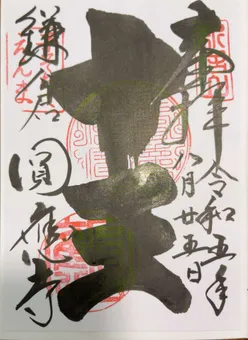 奉拝
令和五年
八月廿五日
十王
鎌倉
えんま
圓應寺